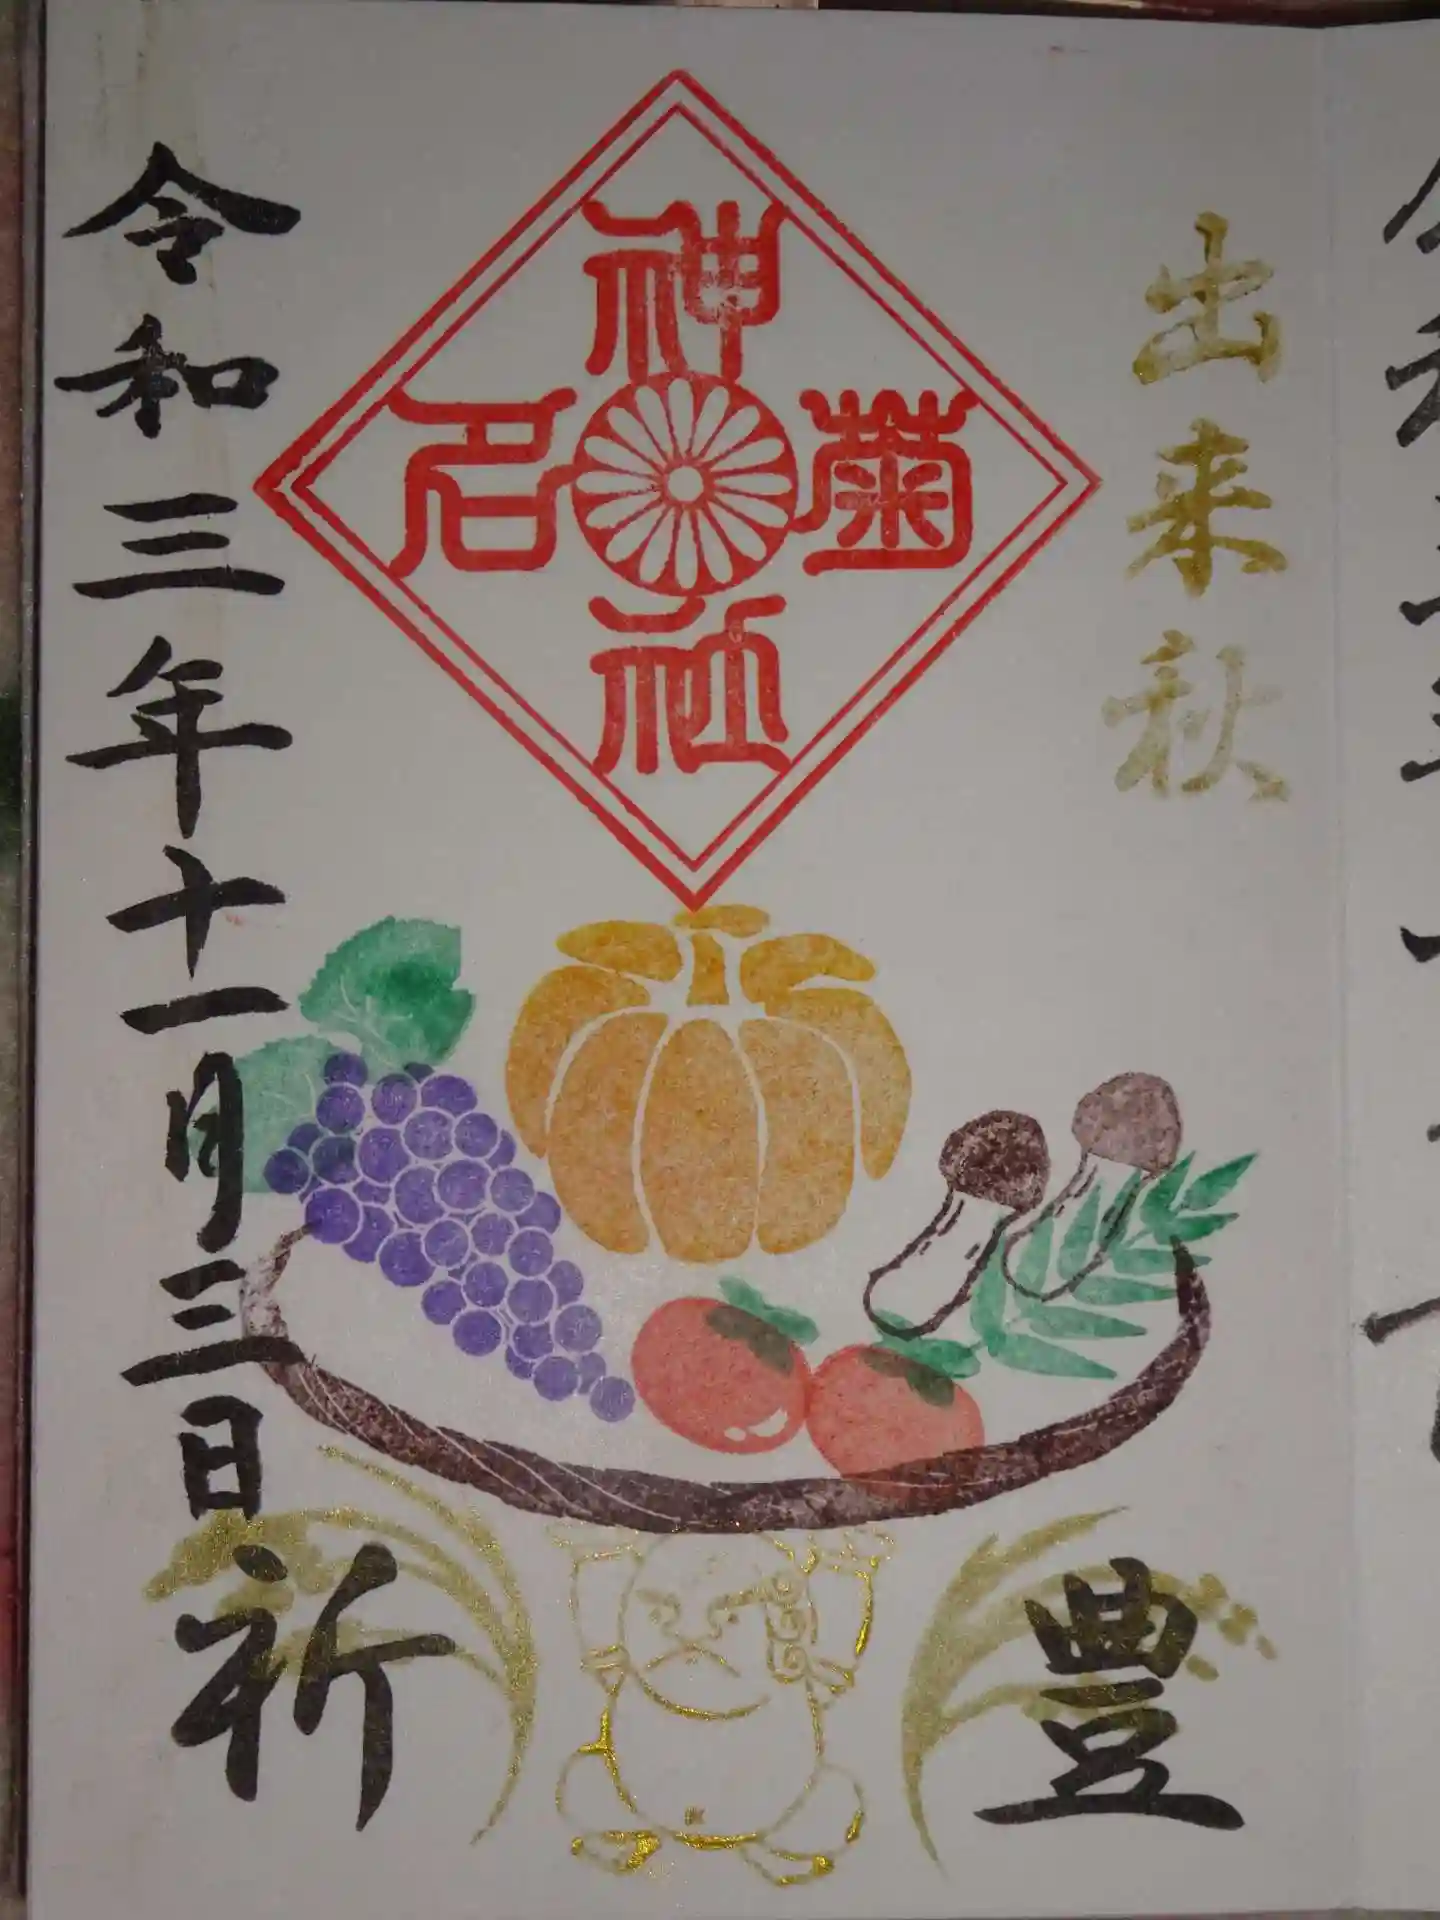 出来秋
菊名神社
豊
祈
令和三年十一月三日